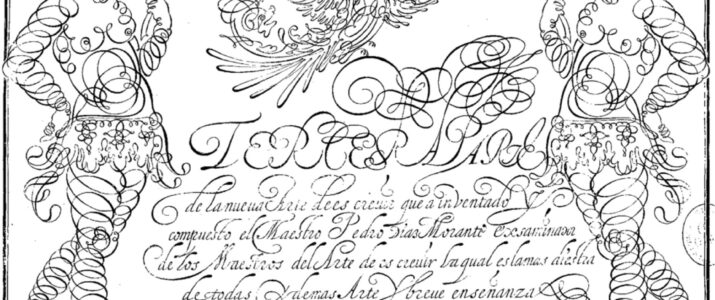 TERCERA PARTE
de la nueva Arte de es creuir que a inventado y
compuesto el Maestro Pedro Diaz Morante exsaminador
de los Maestros del Arte de es creuir la qual es la mas diestra
de todas y demas Arte y breue enseñanza